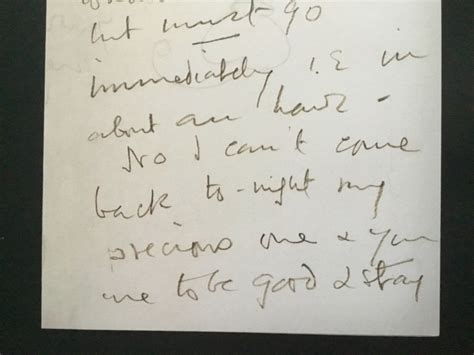 but must go
immediately i.e in
about an hour -
No I can't come
back to-night my
precious one & you
are to be good & stay